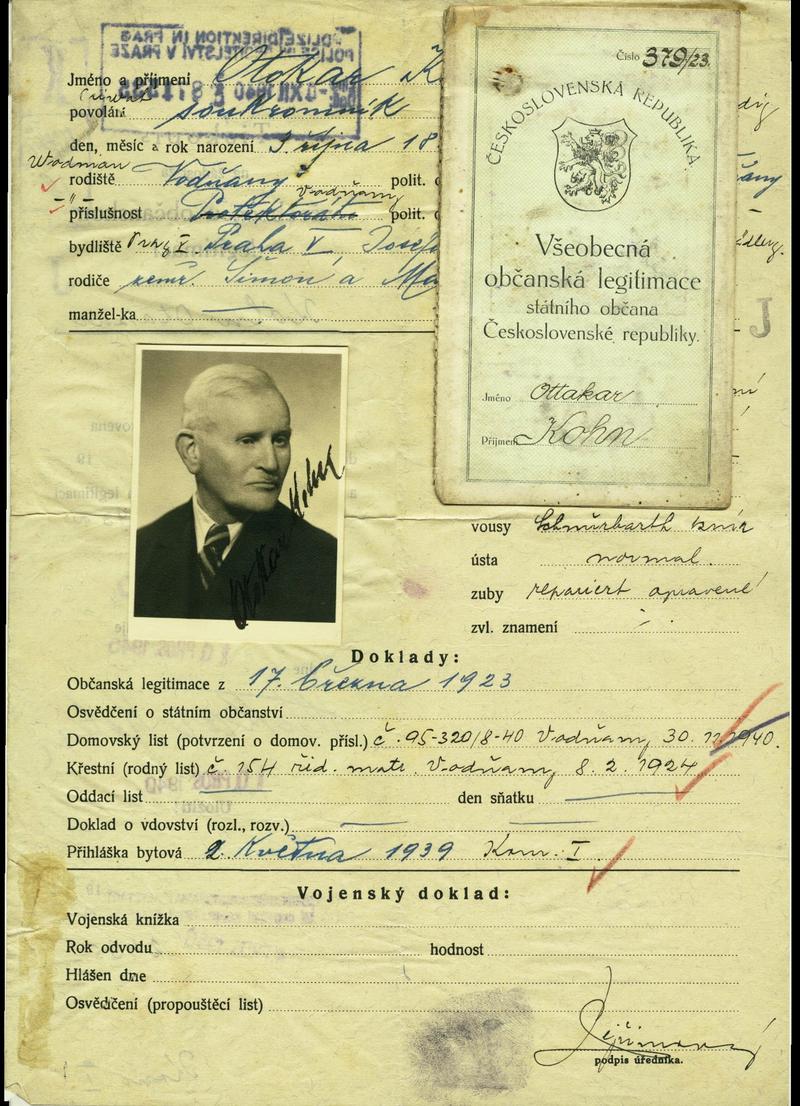 Jméno a příjmení Otokar K
povolání soukromník
den, měsíc a rok narození 3 října 18
Wodnian
rodiště Vodňany polit.
Vodňany
příslušnost Protektorát polit.
bydliště Prag V Praha V, Josefo
rodiče zemř. Šimon a Ma
manžel-ka
Číslo 379/23
ČESKOSLOVENSKÁ REPUBLIKA.
Všeobecná
občanská legitimace
státního občana
Československé republiky.
Jméno Ottakar
Příjmení Kohn
J
Otokar Kohn
vousy Schnurbarth knír
ústa normal.
zuby repariert opravené
zvl. znamení
Doklady:
Občanská legitimace z 17. března 1923
Osvědčení o státním občanství
Domovský list (potvrzení o domov. přísl.) č. 95-320/8-40 Vodňany 30. 12. 1940.
Křestní (rodný list) č. 154 řid. matr. Vodňany 8. 2. 1924
Oddací list den sňatku
Doklad o vdovství (rozl., rozv.)
Přihláška bytová 2. Května 1939 Kom. I.
Vojenský doklad:
Vojenská knížka
Rok odvodu hodnost
Hlášen dne
Osvědčení (propouštěcí list)
podpis úředníka.